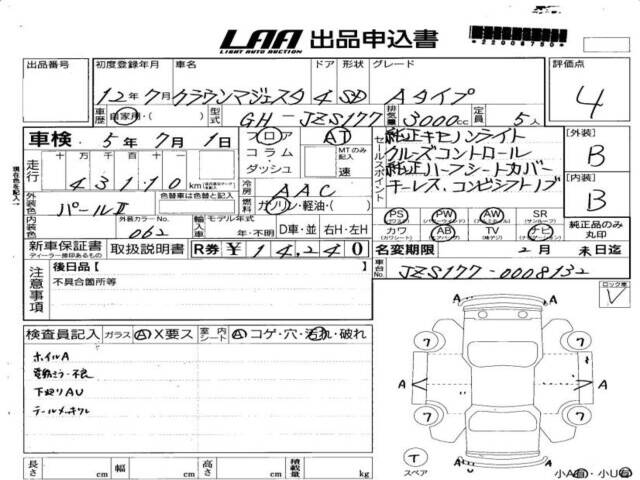 LAA 出品申込書
LIGHT AUTO AUCTION
*22008750*
出品番号 初度登録年月 車名 ドア 形状 グレード 評価点
12年7月 クラウンマジェスタ 4 SD Aタイプ 4
車歴 自家用・( ) 型式 GH-JZS177 排気量 3000cc 定員 5人
車検 5年7月1日 フロア AT
コラム
ダッシュ MTのみ記入 速
現在色を記入
走行 十万千百十 43110km
冷房 AAC
セールスポイント 純正キセノンライト
クルーズコントロール
純正ハーフシートカバー
キーレス、コンビシフトノブ
[外装] B
[内装] B
外装色 パールⅡ 色替車は色替と記入 燃料 ガソリン・軽油・( )
内装色 外装カラーNo. 062 輸入車 モデル年式 年・不明 D車・並 右H・左H
PS PW AW SR
(パワステ) (パワーウインド) (サンルーフ)
カワ AB TV ナビ
(カワシート) (エアバッグ) (純テレビ) (ナビゲーション)
純正品のみ丸印
新車保証書 取扱説明書 R券 ¥14,240
ディーラー捺印あるもの
名変期限 2月 末日迄
車台No. JZS177-0008132
注意事項 後日品[ ]
不具合箇所等
ロック車
検査員記入 ガラス A X要ス 室内 シート A コゲ・穴・汚れ・破れ
ホイルA
電動ミラー不良
下廻りAU
テールメッキワレ
7 7
A A A A
7 7
T
スペア
小A有・小U有
長さ cm 幅 cm 高さ cm 積載量 kg